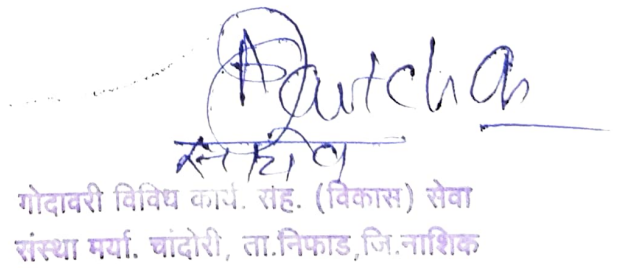 सचिव
गोदावरी विविध कार्य. सह. (विकास) सेवा
संस्था मर्या. चांदोरी, ता.निफाड,जि.नाशिक